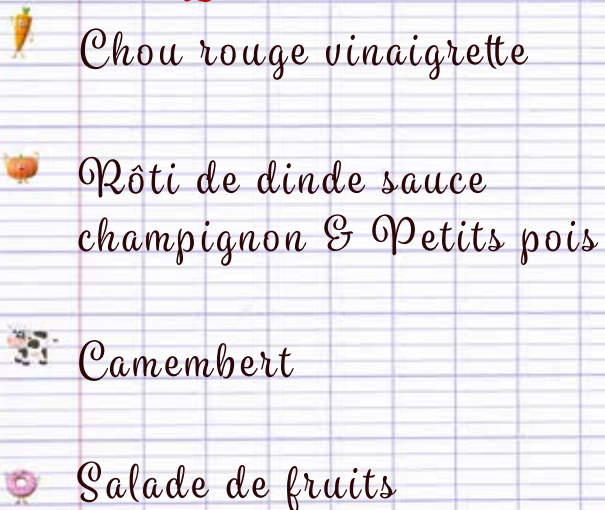 Chou rouge vinaigrette
Rôti de dinde sauce
champignon & Petits pois
Camembert
Salade de fruits